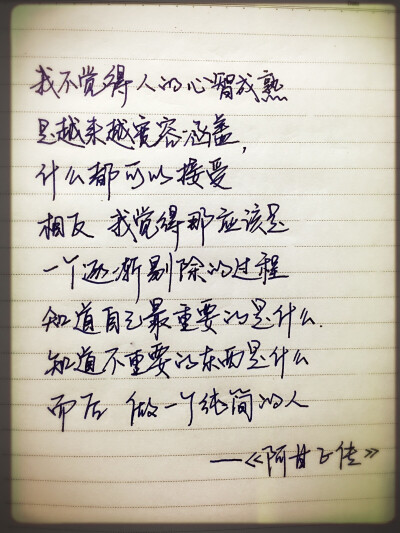 我不觉得人的心智成熟
是越来越宽容涵盖，
什么都可以接受
相反 我觉得那应该是
一个逐渐剔除的过程
知道自己最重要的是什么.
知道不重要的东西是什么
而后 做一个纯简的人
——《阿甘正传》